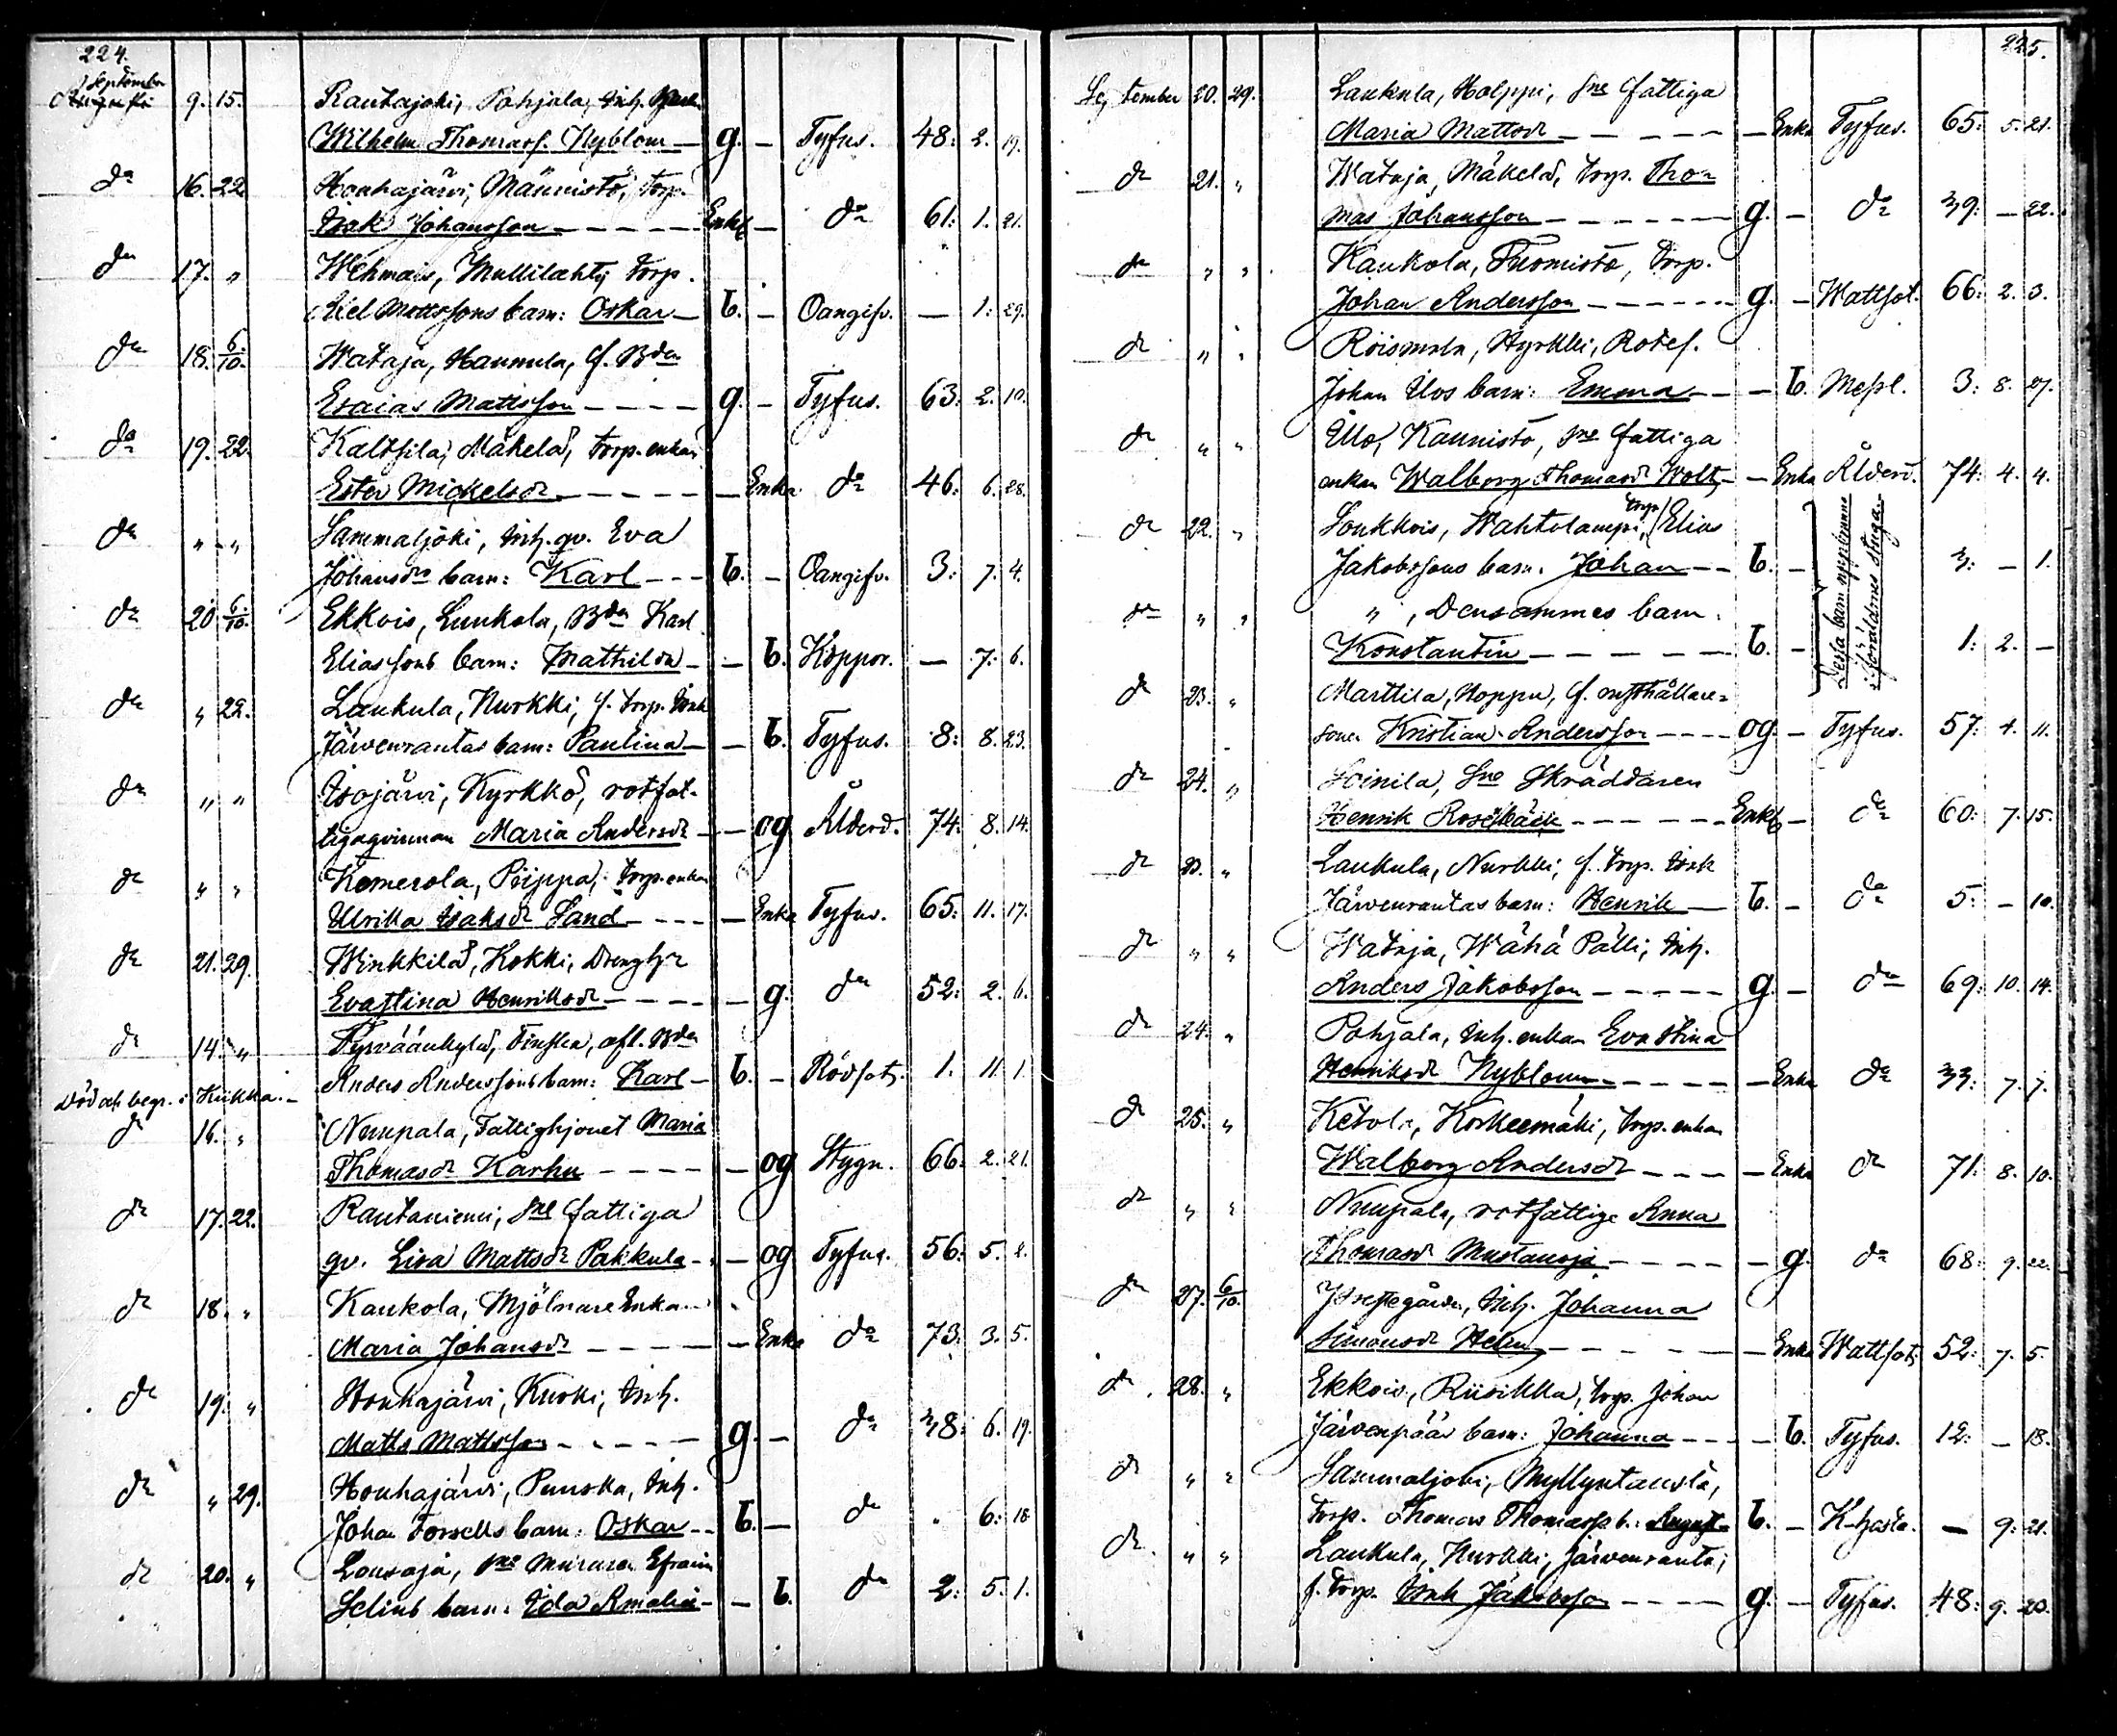 224.
September
9. 15. Rautajoki, Pohjala, Inh.
Wilhelm Thomass. Nyblom — g. — Tyfus. 48: 2. 19.
do 16. 22 Houhajärvi, Männistö, torp.
Isak Johansson — Enkl — do 61: 1. 21.
do 17. " Wehmais, Mullilahti, torp.
Axel Mattssons barn: Oskar — b. — Oangifv. — 1: 29.
do 18. 6/10. Wataja, Hannula, f. Bdn
Esaias Mattsson — g. — Tyfus. 63: 2. 10.
do 19. 22. Kaltsila, Mäkelä, torp. enkan
Ester Mickelsdr — Enka do 46: 6. 28.
do " " Sammaljoki, Inh. qv. Eva
Johansdrs barn: Karl — b. — Oangifv. 3: 7. 4.
do 20. 6/10. Ekkois, Luukola, Bdn Karl
Eliassons barn: Mathilda — b. Koppor. — 7: 6.
do " 22. Laukula, Nurkki, f. torp. Isak
Järvenrantas barn: Paulina — b. Tyfus. 8: 8. 23.
do " " Isojärvi, Kyrkkö, rotfat-
tigaqvinnan Maria Andersdr — og Ålderd. 74: 8. 14.
do " " Kemerola, Piippa, torp. enkan
Ulrika Isaksdr Sand — Enka Tyfus. 65: 11. 17.
do 21. 29. Winkkilä, Kokki, drengh.
Evastina Henriksdr — g. do 52: 2. 6.
do 14. " Tyrväänkylä, Finskla, afl. Bdn
Anders Anderssons barn: Karl — b. — Rödsot. 1. 11. 1
Död och begr. i Kiikka. —
do 16. " Nuupala, Fattighjonet Maria
Thomasdr Karhu — og Stygn. 66: 2. 21.
do 17. 22. Rautaniemi, sne fattiga
qv. Lisa Mattsdr Pakkula — og Tyfus. 56: 5. 2.
do 18. " Kaukola, Mjölnare Enka
Maria Johansdr — Enka do 73: 3. 5.
do 19. " Houhajärvi, Kurki, Inh.
Matts Mattsson — g. — do 38: 6. 19.
do " 29. Houhajärvi, Punska, Inh.
Johan Forsells barn: Oskar — b. — do " 6: 18
do 20. " Lousaja, sne muraren Efraim
Selins barn: Ida Amalia — b. do 2: 5. 1.
225.
September 20. 29. Laukula, Holppi, sne fattiga
Maria Mattsdr — Enka Tyfus. 65: 5. 21.
do 21. " Wataja, Mäkelä, torp. Tho-
mas Johansson — g. — do 39: — 22.
do " " Kaukola, Thomisto, torp.
Johan Andersson — g — Wattsot. 66: 2. 3.
do " " Roismala, Hyrkki, Rotef.
Johan Ulos barn: Emma — b. Messl. 3: 8. 27.
do " " Ulo, Kaunisto, sne fattiga
enkan Walborg Thomasdr Wolt — Enka Ålderd. 74: 4. 4.
do 22. " Soukkois, Wahtolampi, torp. Elias
Jakobssons barn. Johan — b. — 3: — 1.
do " " " , Densammes barn
Konstantin — b. — 1: 2. —
Dessa barn uppbrunno
i föräldrns stuga.
do 23. " Marttila, Hoppu, f. rusthållare-
sonen Kristian Andersson — og — Tyfus. 57: 4. 11.
do 24. " Soinila, Sne Skräddaren
Henrik Rosenbäck — Enkl — do 60: 7. 15.
do 23. " Laukula, Nurkki, f. torp. Isak
Järvenrantas barn: Henrik — b. — do 5: — 10.
do " " Wataja, Wähä Pälli, Inh.
Anders Jakobsson — g — do 69: 10. 14.
do 24. " Pohjala, Inh. enkan Eva Stina
Henriksdr Nyblom — Enka do 33: 7. 7.
do 25. " Ketola, Korkeemäki, torp. enkan
Walborg Andersdr — Enka do 71: 8. 10.
do " " Nuupala, rotfattiga Anna
Thomasdr Mustanoja — g. do 68: 9. 22.
do 27. 6/10. Prestegården, Inh. Johanna
Simonsdr Helin — Enka Wattsot. 52: 7. 5.
do 28. " Ekkois, Riisikka, torp. Johan
Järvenpääs barn: Johanna — b. Tyfus. 12: — 18.
do " " Sammaljoki, Myllyntausta,
torp. Thomas Thomass. b.: August — b. — K-hosta. — 9: 21.
do " " Laukula, Nurkki, Järvenranta,
f. torp. Isak Jakobsson — g. — Tyfus. 48: 9. 20.